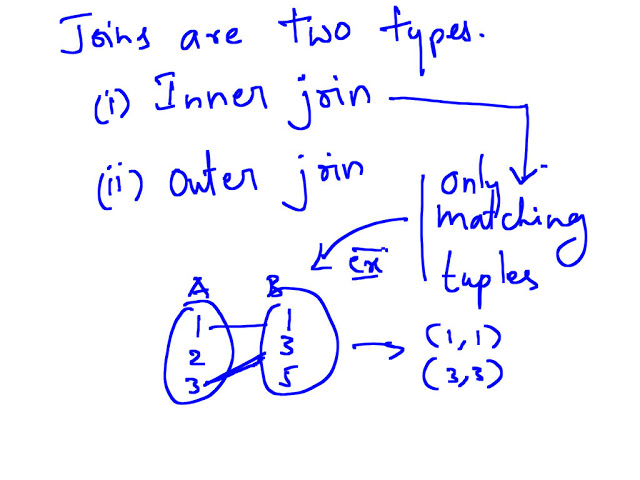 Joins are two types.
(i) Inner join
(ii) outer join
only
matching
tuples
ex
A B
1 1
2 3
3 5
(1,1)
(3,3)